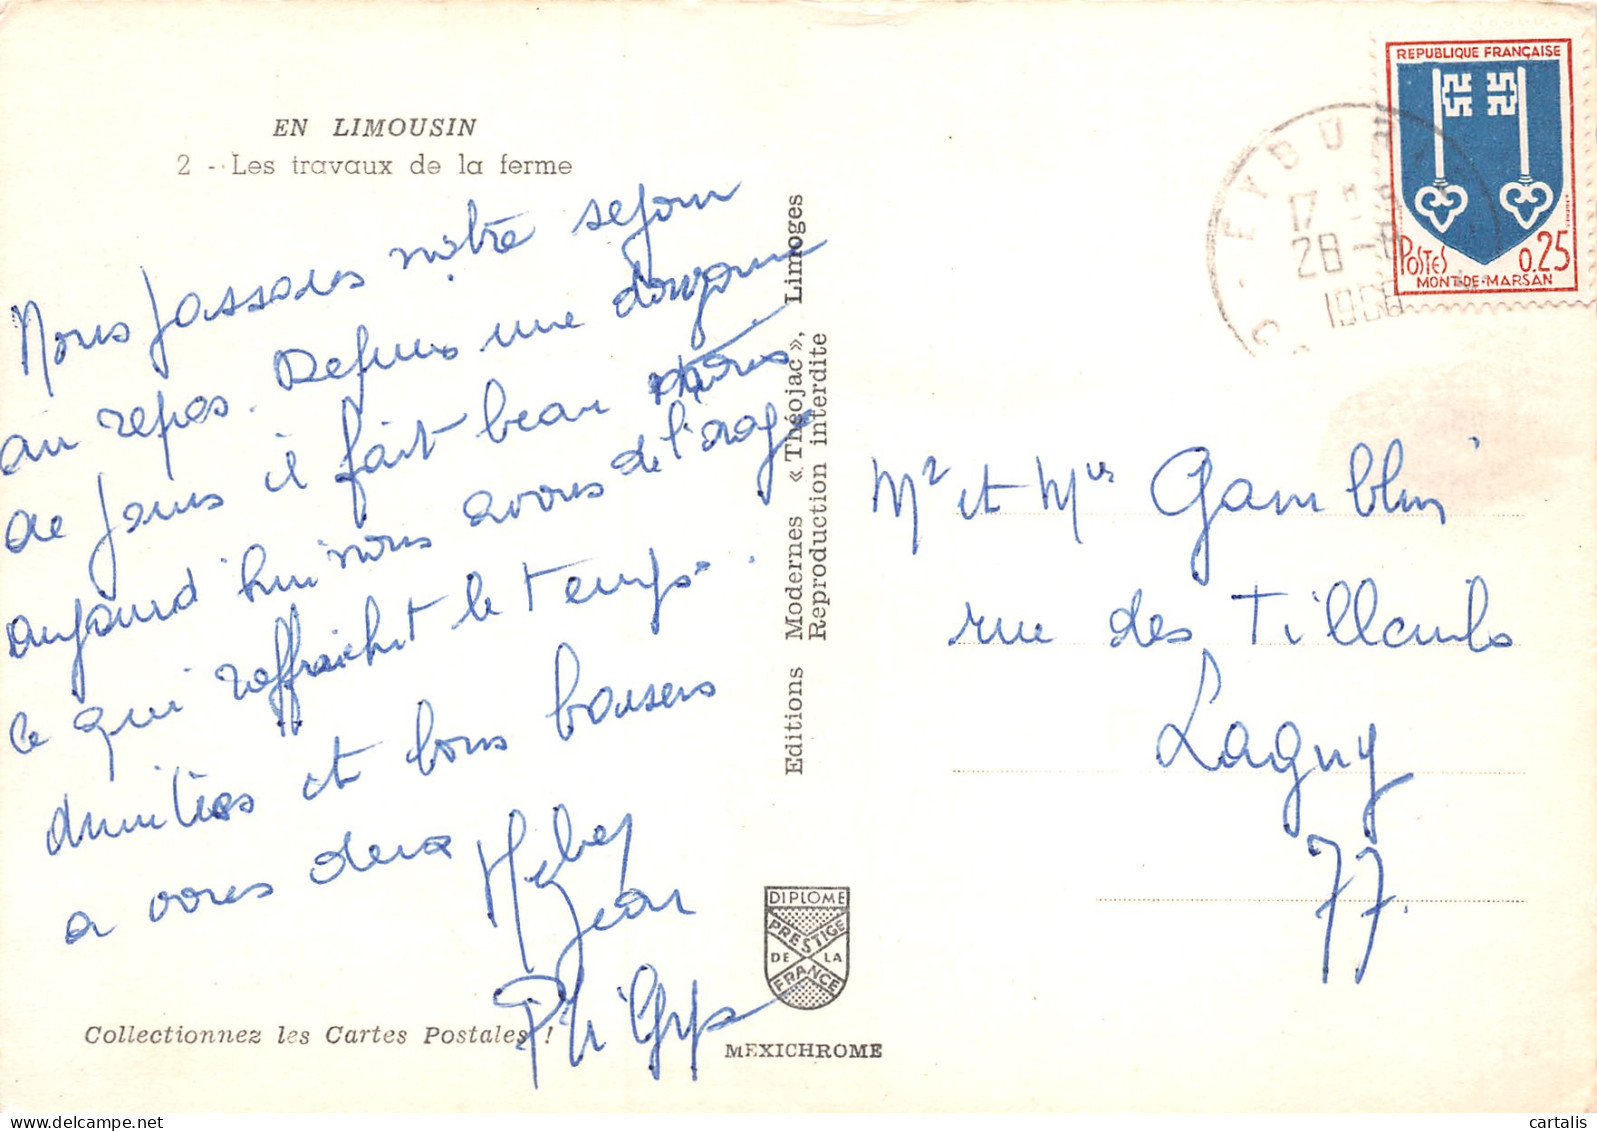 EN LIMOUSIN
2 - Les travaux de la ferme
Nous passons notre sejour
au repos. Depuis une douzaine
de jours il fait beau mais
aujourd'hui nous avons de l'orage
ce qui raffraichit le temps.
Amitiés et bons baisers
a vous deux
Jean
Philippe
Collectionnez les Cartes Postales !
Editions Modernes « Théojac », Limoges
Reproduction interdite
DIPLOME
PRESTIGE
DE LA
FRANCE
MEXICHROME
REPUBLIQUE FRANÇAISE
POSTES 0.25
MONT-DE-MARSAN
EYBUR
17
28 -8
Mr et Mme Gamblin
rue des Tilleuls
Lagny
77.
cartalis